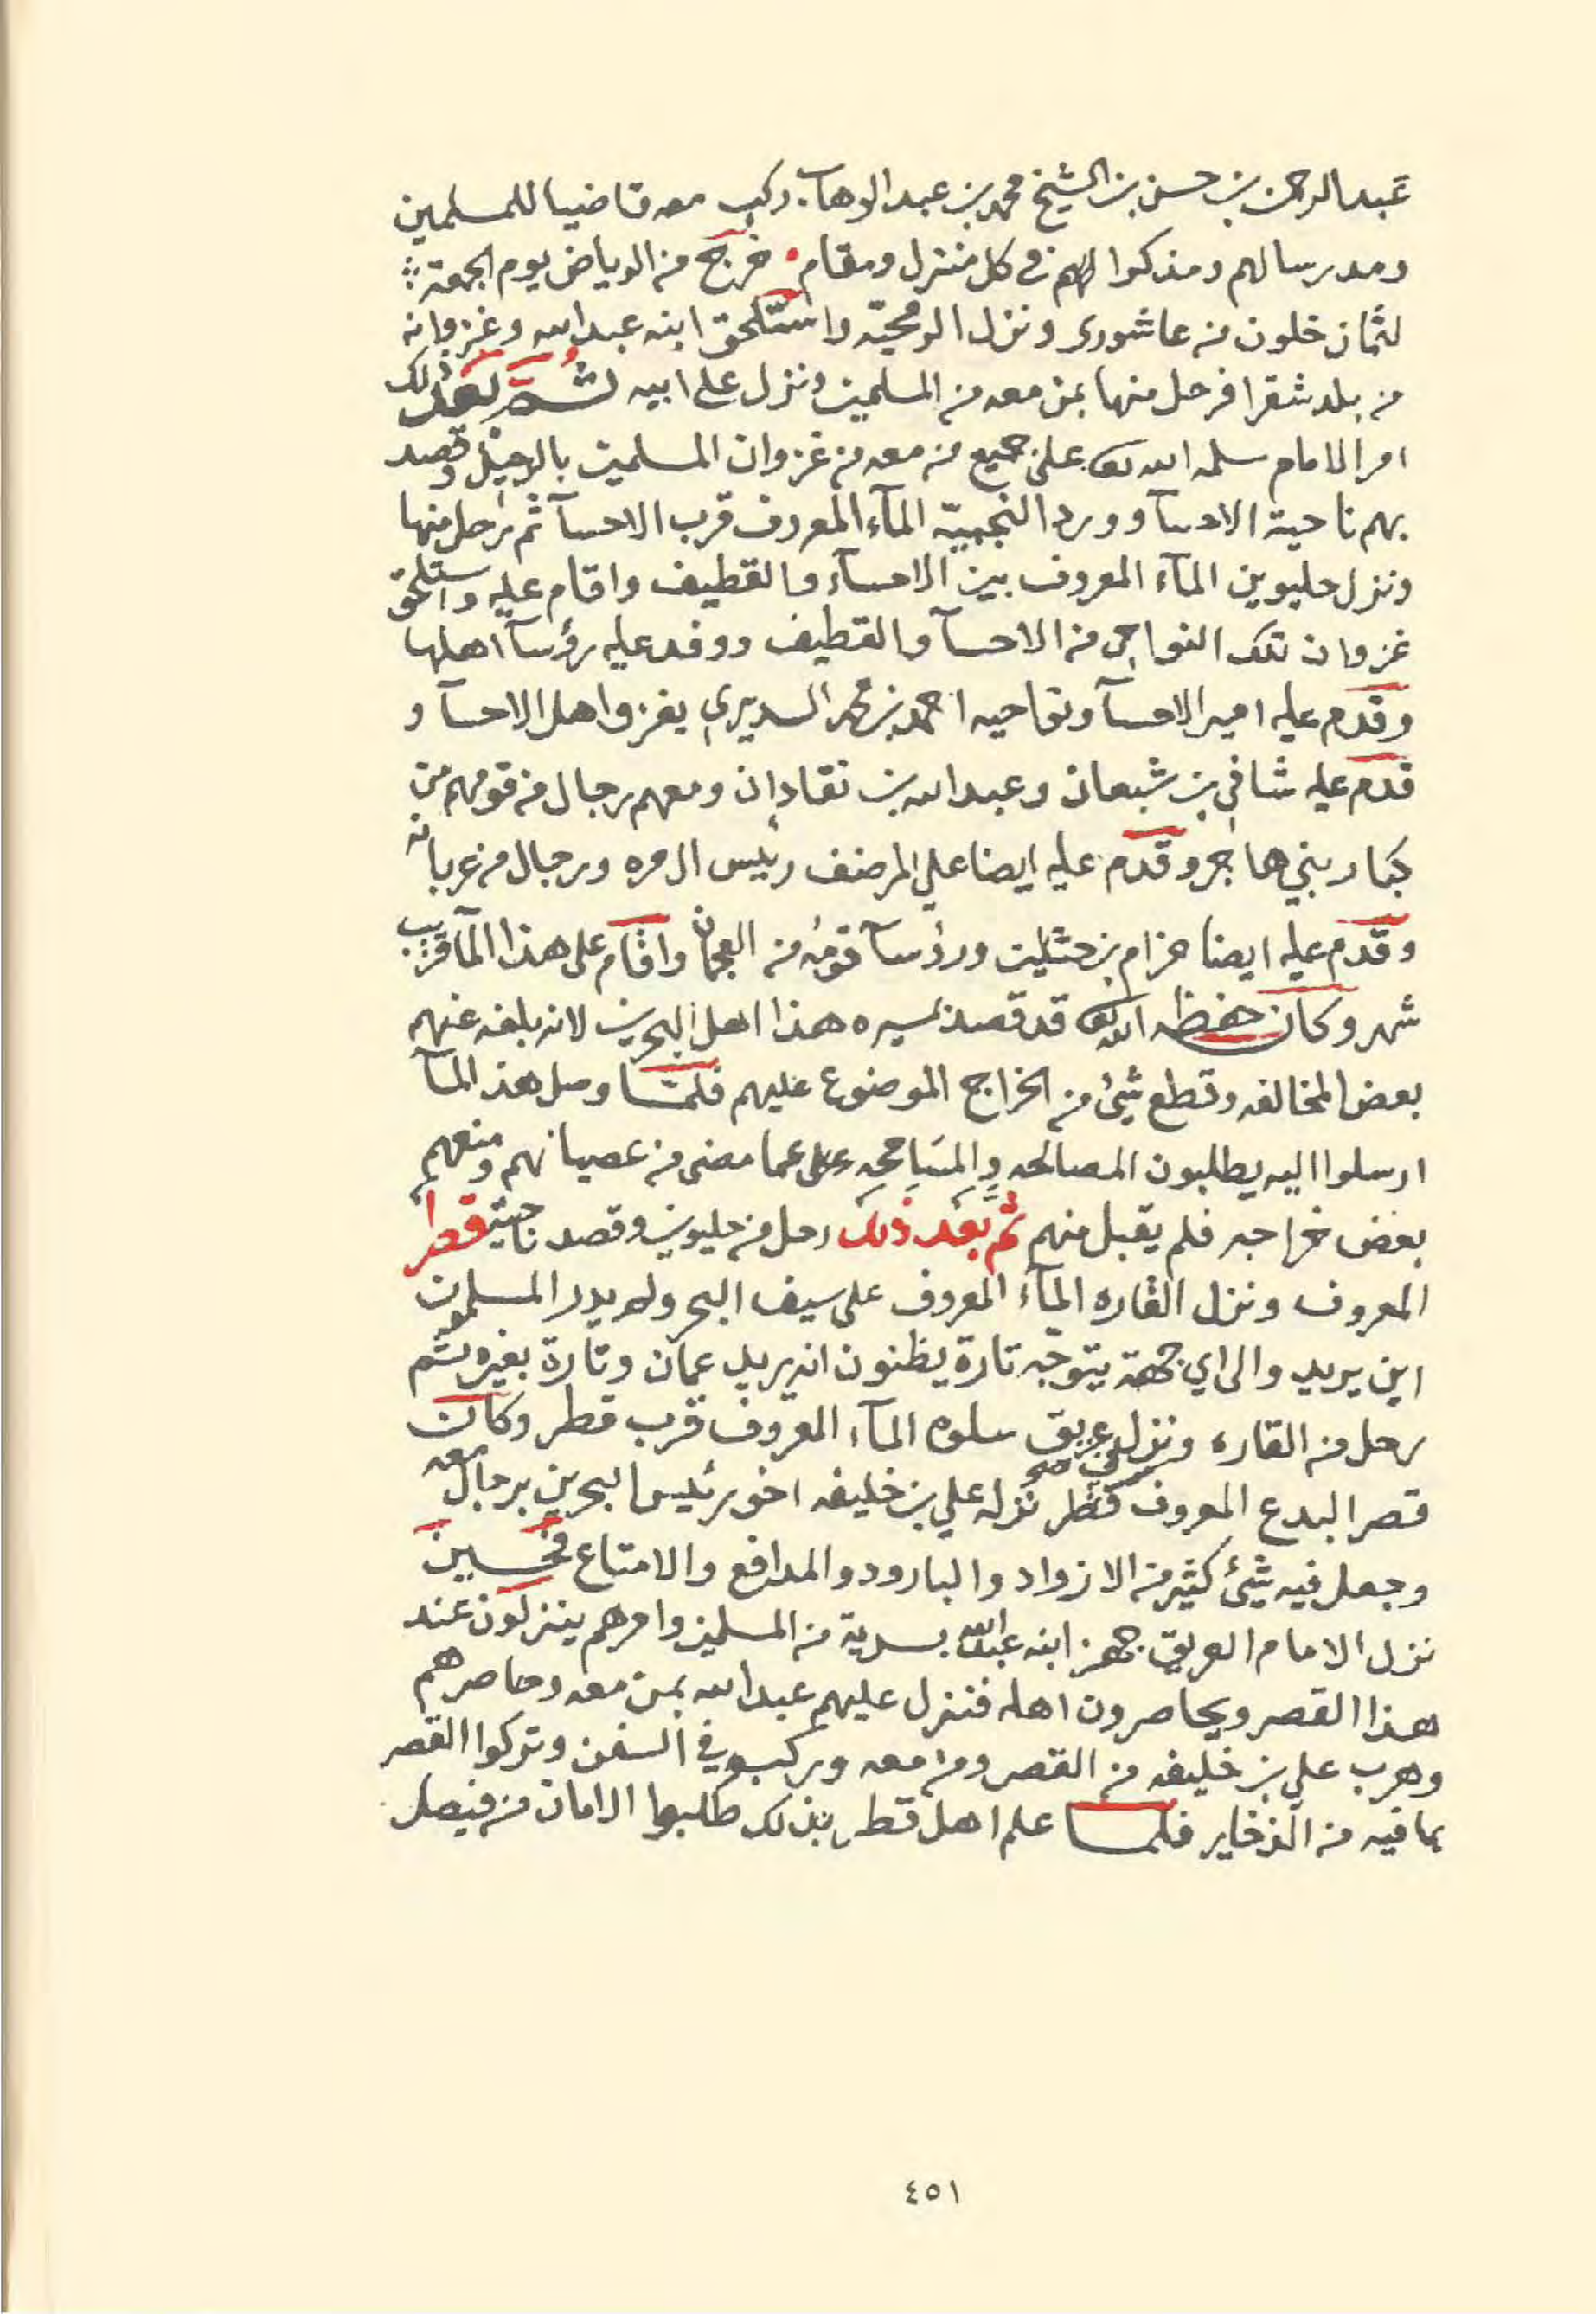 عبدالرحمن بن حسن بن الشيخ محمد بن عبدالوهاب. ركب معه قاضيا للمسلمين
ومدرسا لهم ومذكرا لهم في كل منزل ومقام. خرج من الرياض يوم الجمعة
لثمان خلون من عاشورى ونزل الرمحيّه واستلحق ابنه عبدالله وغزوانه
من بلد شقرا فرحل منها بمن معه من المسلمين ونزل على ابيه ثم بعد ذلك
امر الامام سلمه الله تعا على جميع من معه من غزوان المسلمين بالرحيل وقصد
بهم ناحية الاحسآ وورد النجبيّه المآء المعروف قرب الاحسآ ثم رحل منها
ونزل حليوين المآء المعروف بين الاحسآء والقطيف واقام عليه واستلحق
غزوان تلك النواحي من الاحسآ والقطيف ووفد عليه رؤسآ اهلها
وقدم عليه امير الاحسآ ونواحيه احمد بن محمد السديري بغزو اهل الاحسآ و
قدم عليه شافي بن شبعان وعبدالله بن نقادان ومعهم رجال من قومهم من
كبار بني هاجر وقدم عليه ايضا علي المرضف رئيس ال مره ورجال من عربانه
وقدم عليه ايضا حزام بن حثلين ورؤسآ قومه من العجمان واقام على هذا المآ قريب
شهر وكان حفظه الله تعا قد قصد بمسيره هذا اهل البحرين لانه بلغه عنهم
بعض المخالفه وقطع شئ من الخراج الموضوع عليهم فلما وصل هذ المآ
ارسلوا اليه يطلبون المصالحه والمسامحه على عما مضى من عصيانهم ومنعهم
بعض خراجه فلم يقبل منهم ثم بعد ذلك رحل من حليوين وقصد ناحية قطر
المعروف ونزل القاره المآء المعروف على سيف البحر ولم يدر المسلمون
اين يريد والى اي جهة يتوجّه تارة يظنون انه يريد عمان وتارة بغيره ثم
رحل من القاره ونزل عريق سلوه المآء المعروف قرب قطر وكان
قصر البدع المعروف في قطر نزله علي بن خليفه اخو رئيس البحرين برجال معه
وجعل فيه شئ كثير من الازواد والبارود والمدافع والامتاع فحين
نزل الامام العريق جهز ابنه عبدالله بسرية من المسلمين وامرهم ينزلون عند
هذا القصر ويحاصرون اهله فنزل عليهم عبدالله بمن معه وحاصرهم
وهرب علي بن خليفه من القصر ومن معه وركبو في السفن وتركوا القصر
بما فيه من الذخاير فلما علم اهل قطر بذلك طلبوا الامان من فيصل
٤٥١